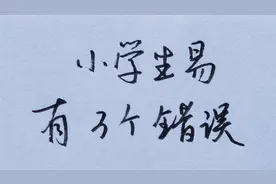 小学生易
有3个错误